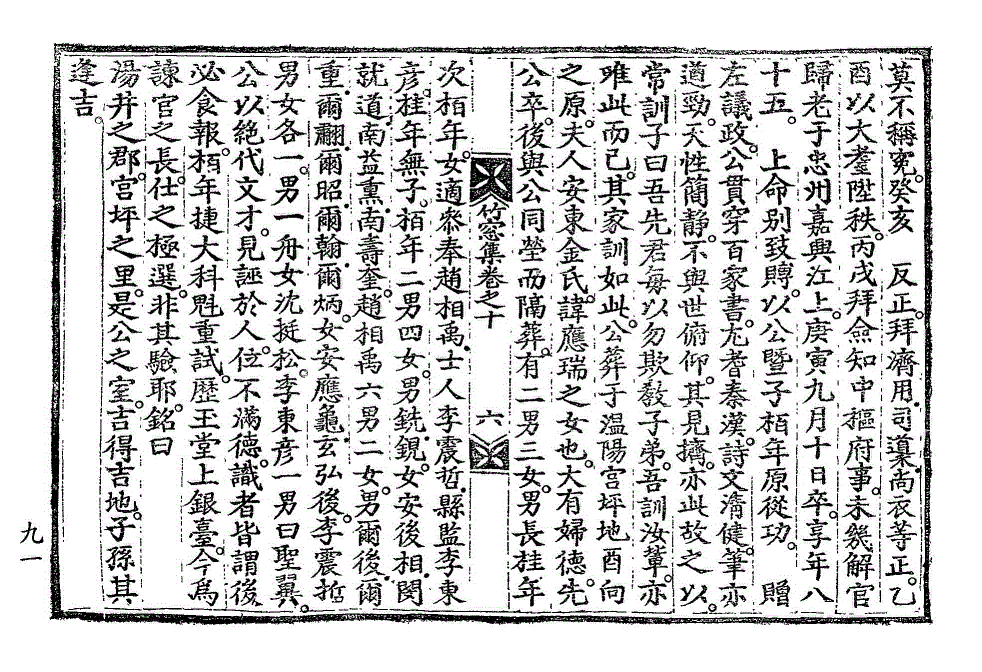 莫不稱冤。癸亥 反正。拜濟用司䆃尙衣等正。乙
酉以大耋陞秩。丙戌拜僉知中樞府事。未幾解官
歸老于忠州嘉興江上。庚寅九月十日卒。享年八
十五。 上命別致賻。以公曁子栢年原從功。 贈
左議政。公貫穿百家書。尤耆秦漢。詩文淸健。筆亦
遒勁。天性簡靜。不與世俯仰。其見擠。亦此故之以。
常訓子曰吾先君每以勿欺敎子弟。吾訓汝輩。亦
唯此而已。其家訓如此。公葬于溫陽宮坪地酉向
之原。夫人安東金氏。諱應瑞之女也。大有婦德。先
公卒。後與公同塋而隔葬。有二男三女。男長桂年
竹窓集卷之十 六
次栢年。女適參奉趙相禹,士人李震哲,縣監李東
彦。桂年無子。栢年二男四女。男銑,鋧。女安後相,閔
就道,南益熏,南壽奎。趙相禹六男二女。男爾後,爾
重,爾翻,爾昭,爾翰,爾炳。女安應龜,玄弘後。李震哲
男女各一。男一舟。女沈挺松。李東彦一男曰聖翼。
公以絶代文才。見誣於人。位不滿德。識者皆謂後
必食報。栢年捷大科魁重試。歷玉堂上銀臺。今爲
諫官之長。仕之極選。非其驗耶。銘曰
湯井之郡。宮坪之里。是公之室。吉得吉地。子孫其
逢吉。
九一